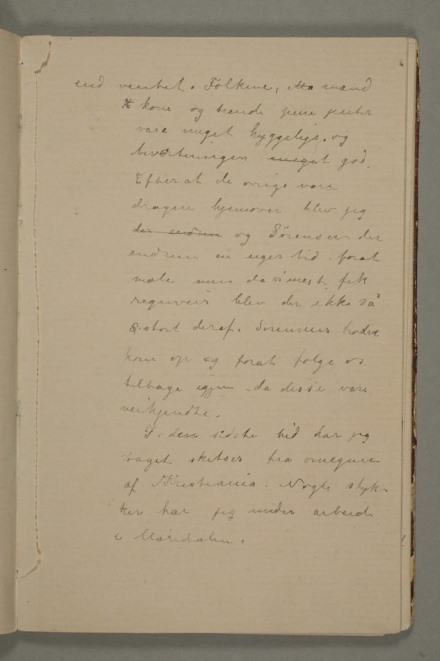 end ventet. Folkene, mand
kone og tvende pene jenter
vare meget hyggelige, og
bevertningen meget god.
Efter at de øvrige vare
dragne hjemover blev jeg
der endnu og Sørensen der
endnu en uges tid, forat
male men da vi mest fik
regnveir blev der ikke så
stort deraf. Sørensens brødre
kom op og forat følge os
tilbage igjen da disse vare
veikjendte.
I den sidste tid har jeg
taget skitser fra omegnen
af Kristiania. Nogle styk-
ker har jeg under arbeide
i Maridalen.